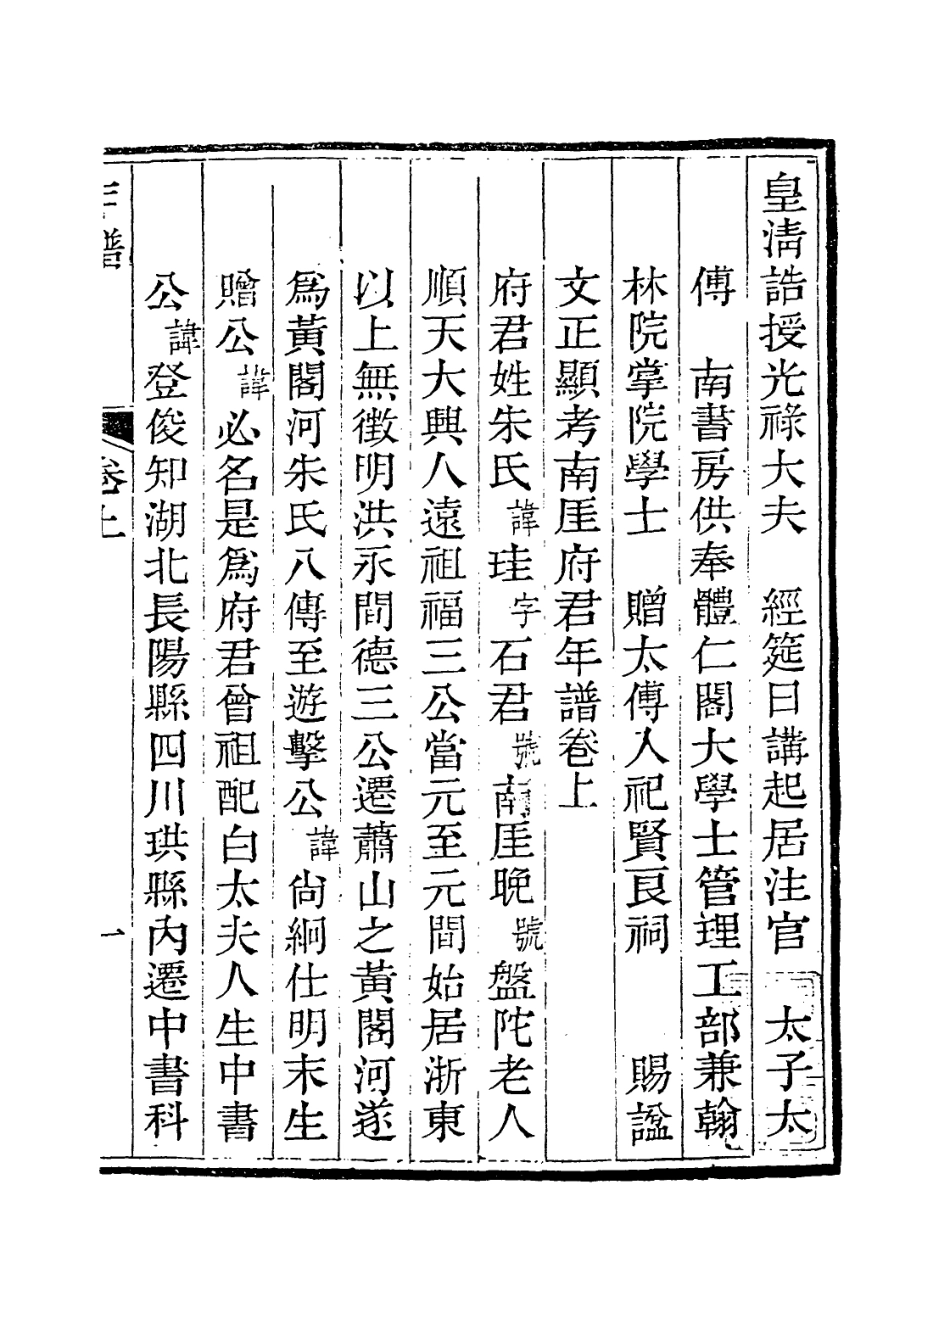 皇淸誥授光祿大夫　經筵日講起居注官　太子太
傅　南書房供奉體仁閣大學士管理工部兼翰
林院掌院學士　贈太傅入祀賢良祠　賜諡
文正顯考南厓府君年譜卷上
府君姓朱氏諱珪字石君號南厓晚號盤陀老人
順天大興人遠祖福三公當元至元間始居浙東
以上無徵明洪永間德三公遷蕭山之黃閣河遂
爲黃閣河朱氏八傳至遊擊公諱尙絅仕明末生
贈公諱必名是爲府君曾祖配白太夫人生中書
公諱登俊知湖北長陽縣四川珙縣內遷中書科
年譜　卷上　一